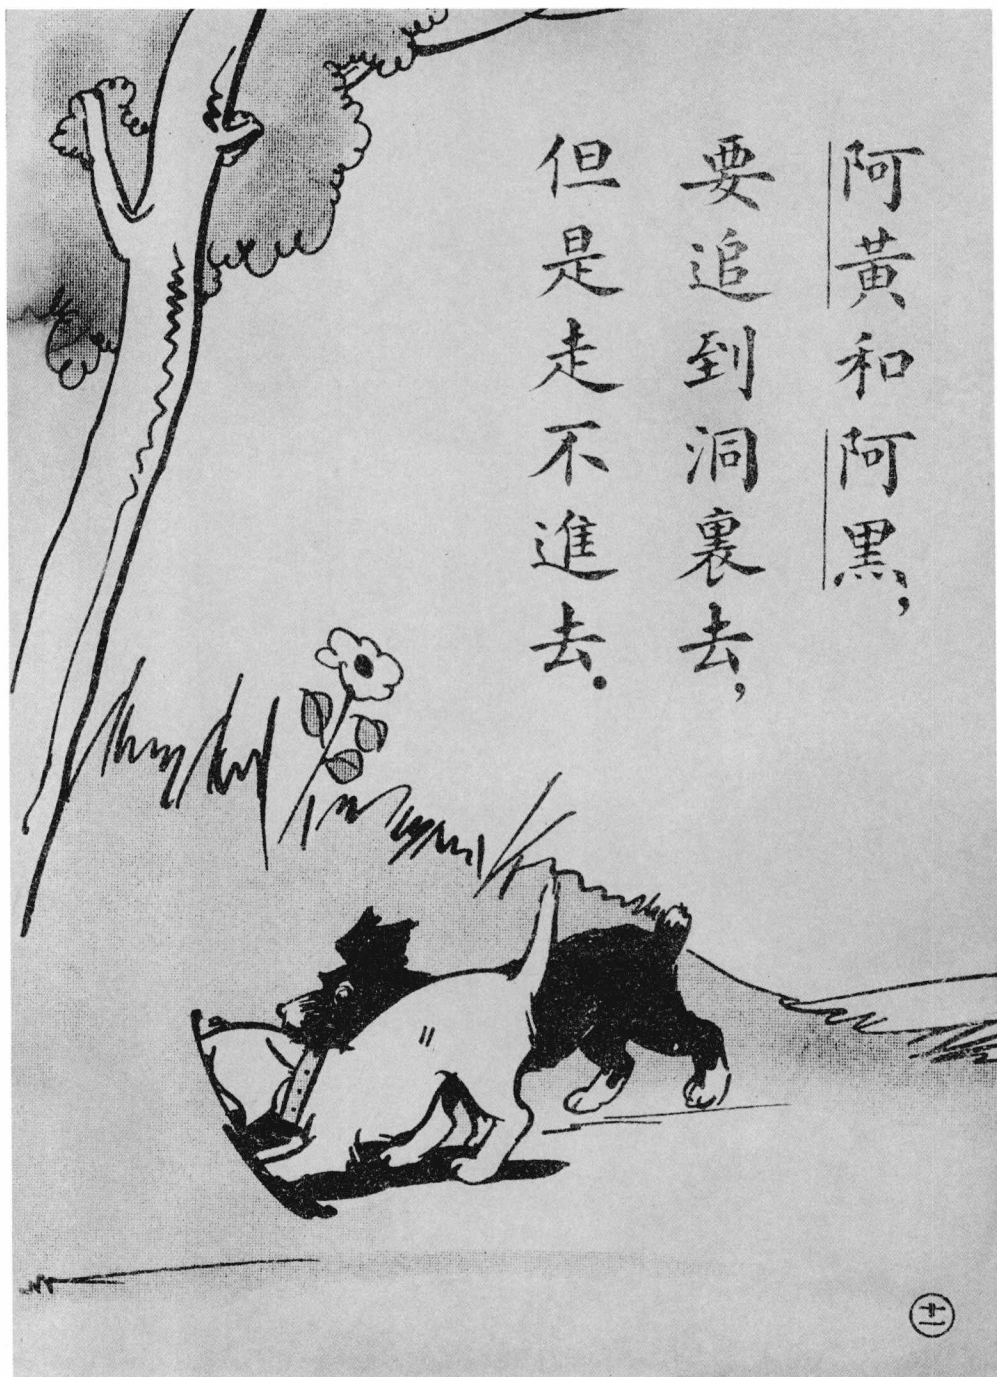 阿黃和阿黑，
要追到洞裏去，
但是走不進去．
廿一